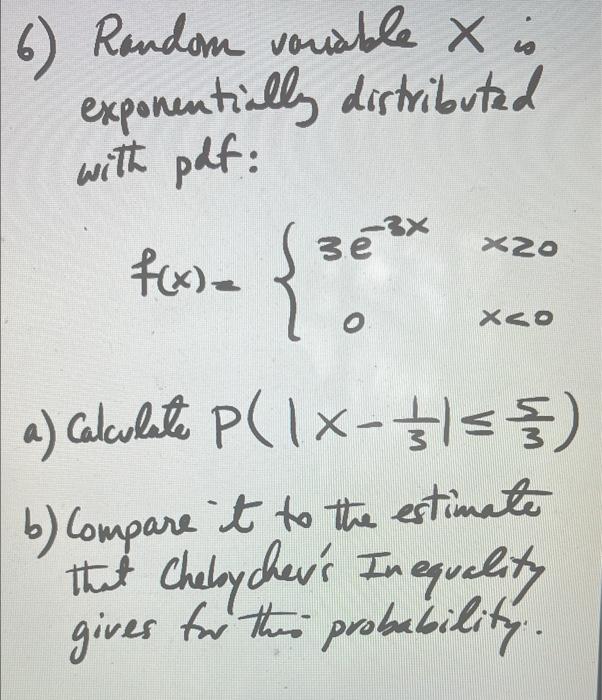 6) Random variable X is
exponentially distributed
with pdf:
f(x) = { 3e^{-3x} x≥0
0 x<0
a) Calculate P(|X - 1/3| ≤ 5/3)
b) Compare it to the estimate
that Chebychev's Inequality
gives for this probability.